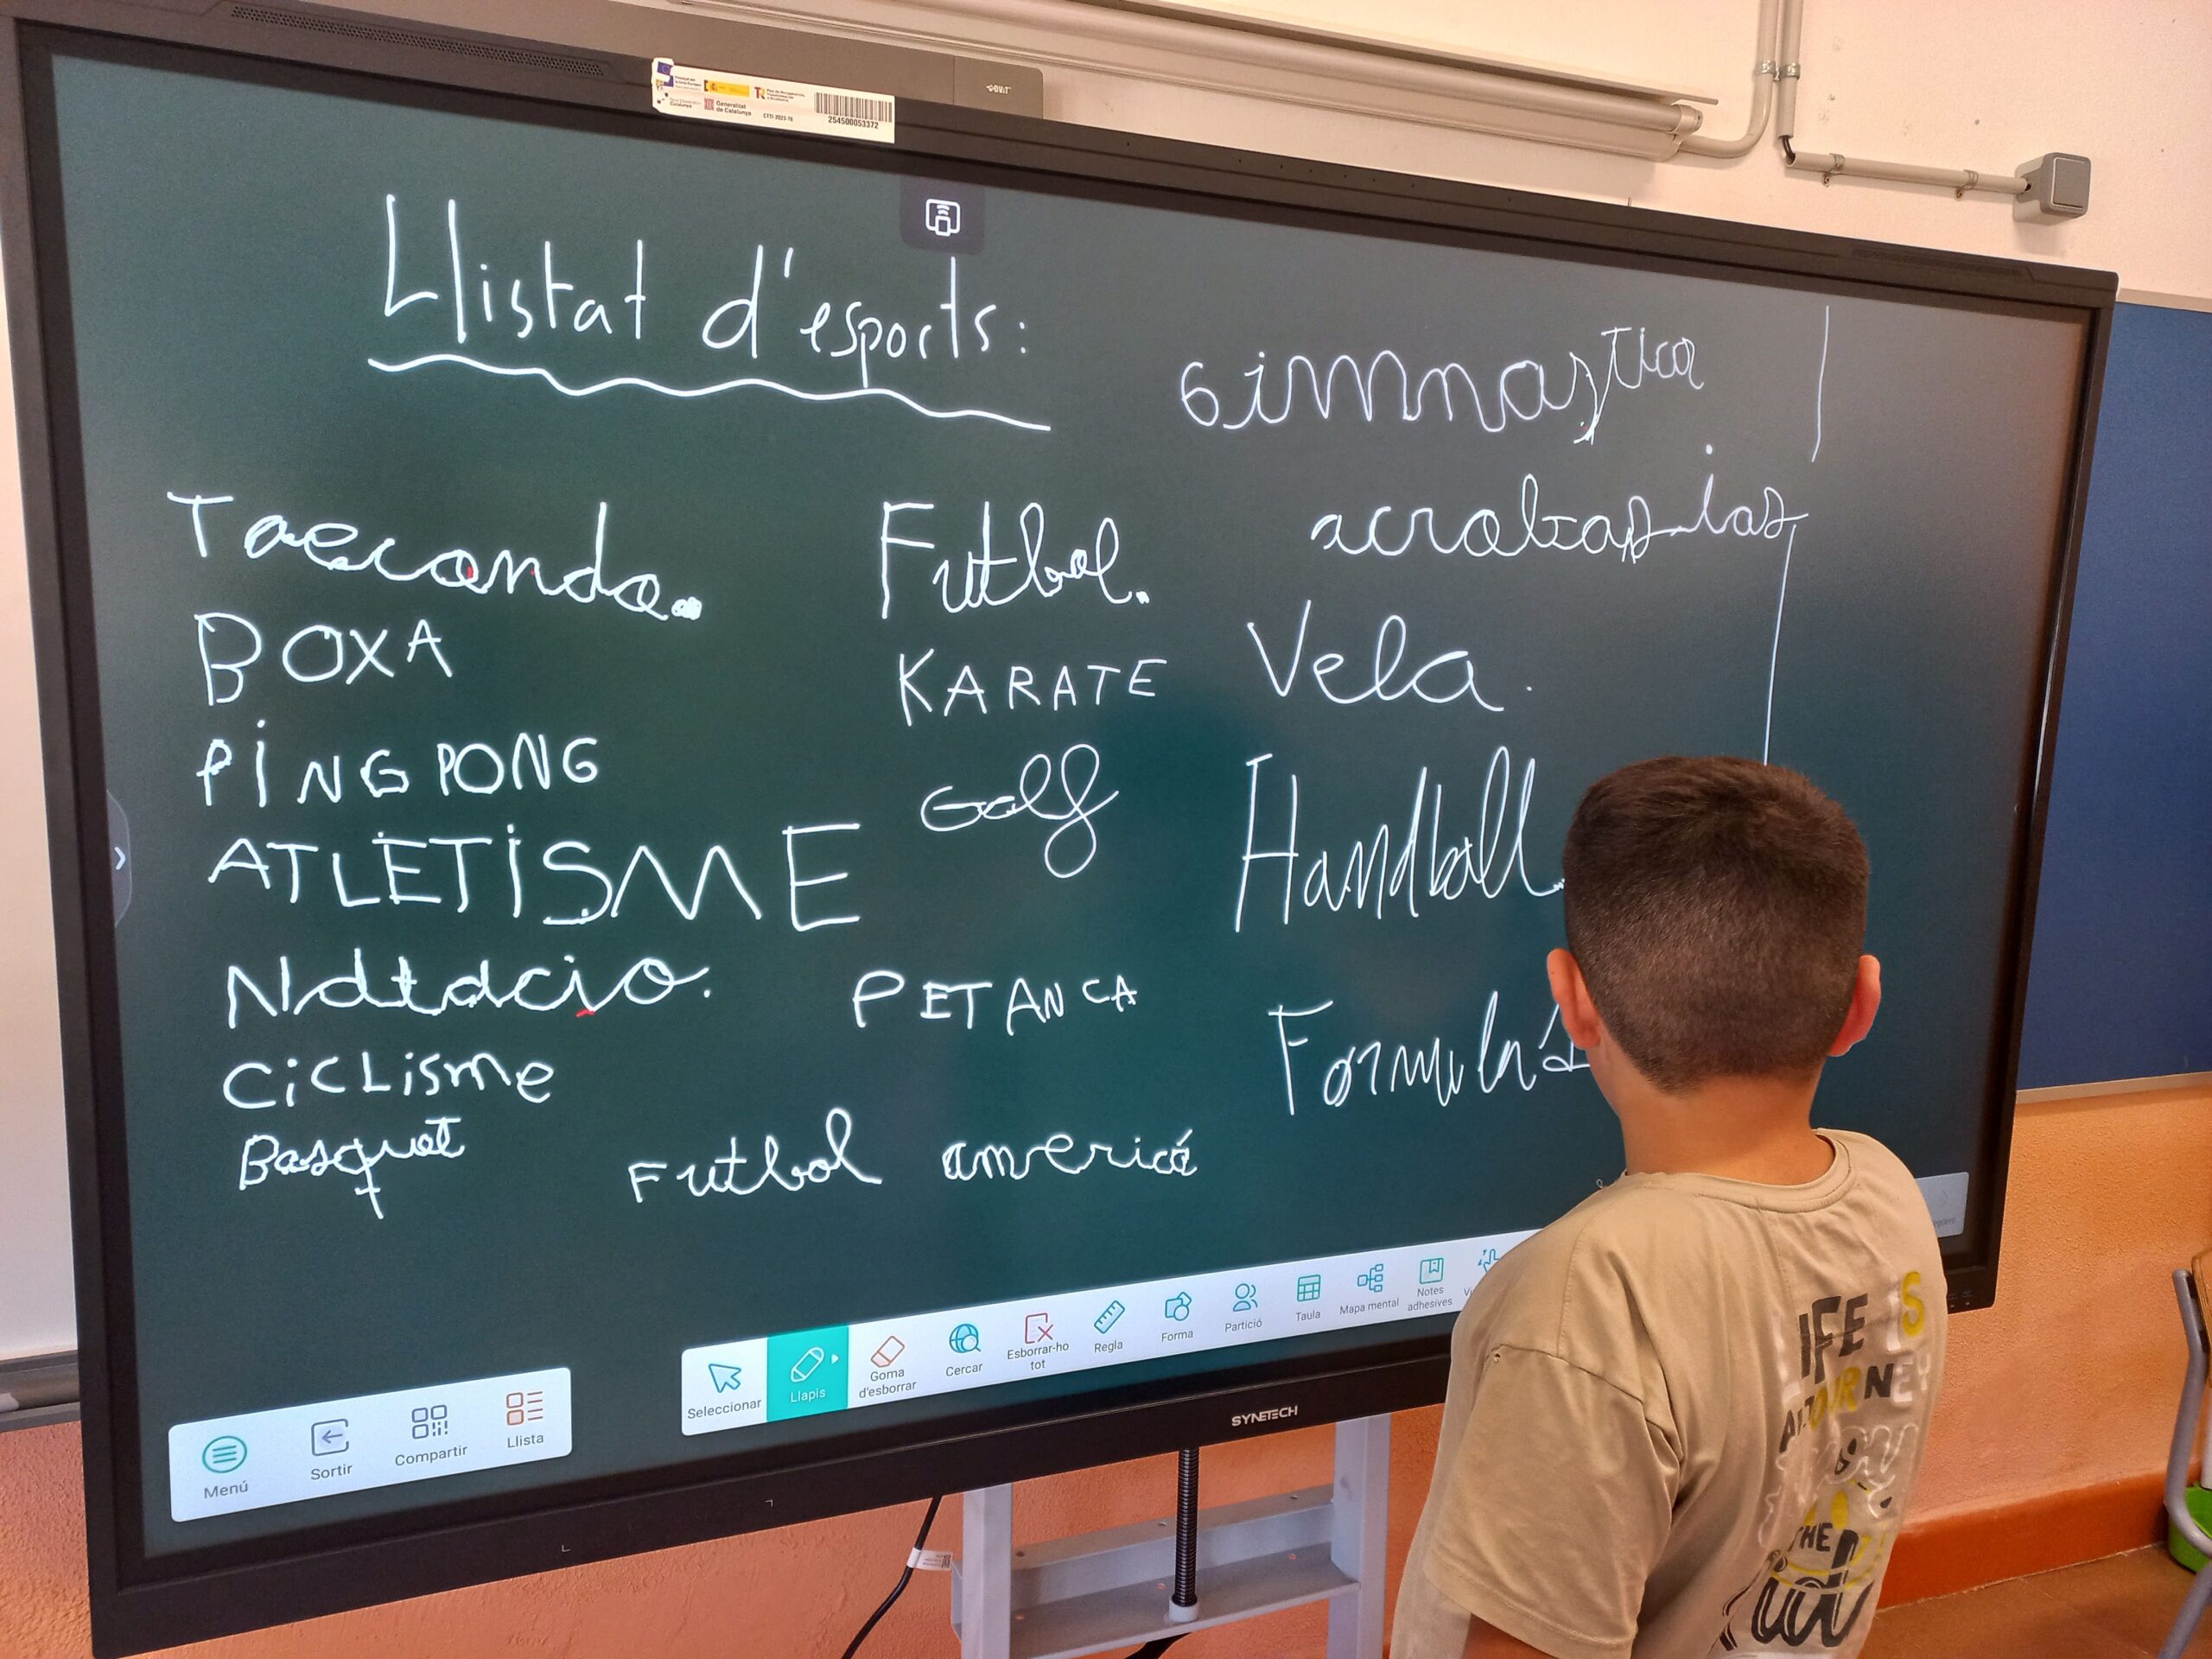 Generalitat de Catalunya
254500053372
Llistat d'esports:
Gimnastica
Taecondo.
Futbol.
BOXA
KARATE
Vela.
PiNG PONG
Golf
Handball.
ATLETiSME
Natacio.
PETANCA
Formula 1
CiCLisme
Basquet
Futbol americá
Menú
Sortir
Compartir
Llista
Seleccionar
Llapis
Goma d'esborrar
Cercar
Esborrar-ho tot
Regla
Forma
Partició
Taula
Mapa mental
Notes adhesives
SYNETECH
LIFE IS
A JOURNEY
ENJOY
THE